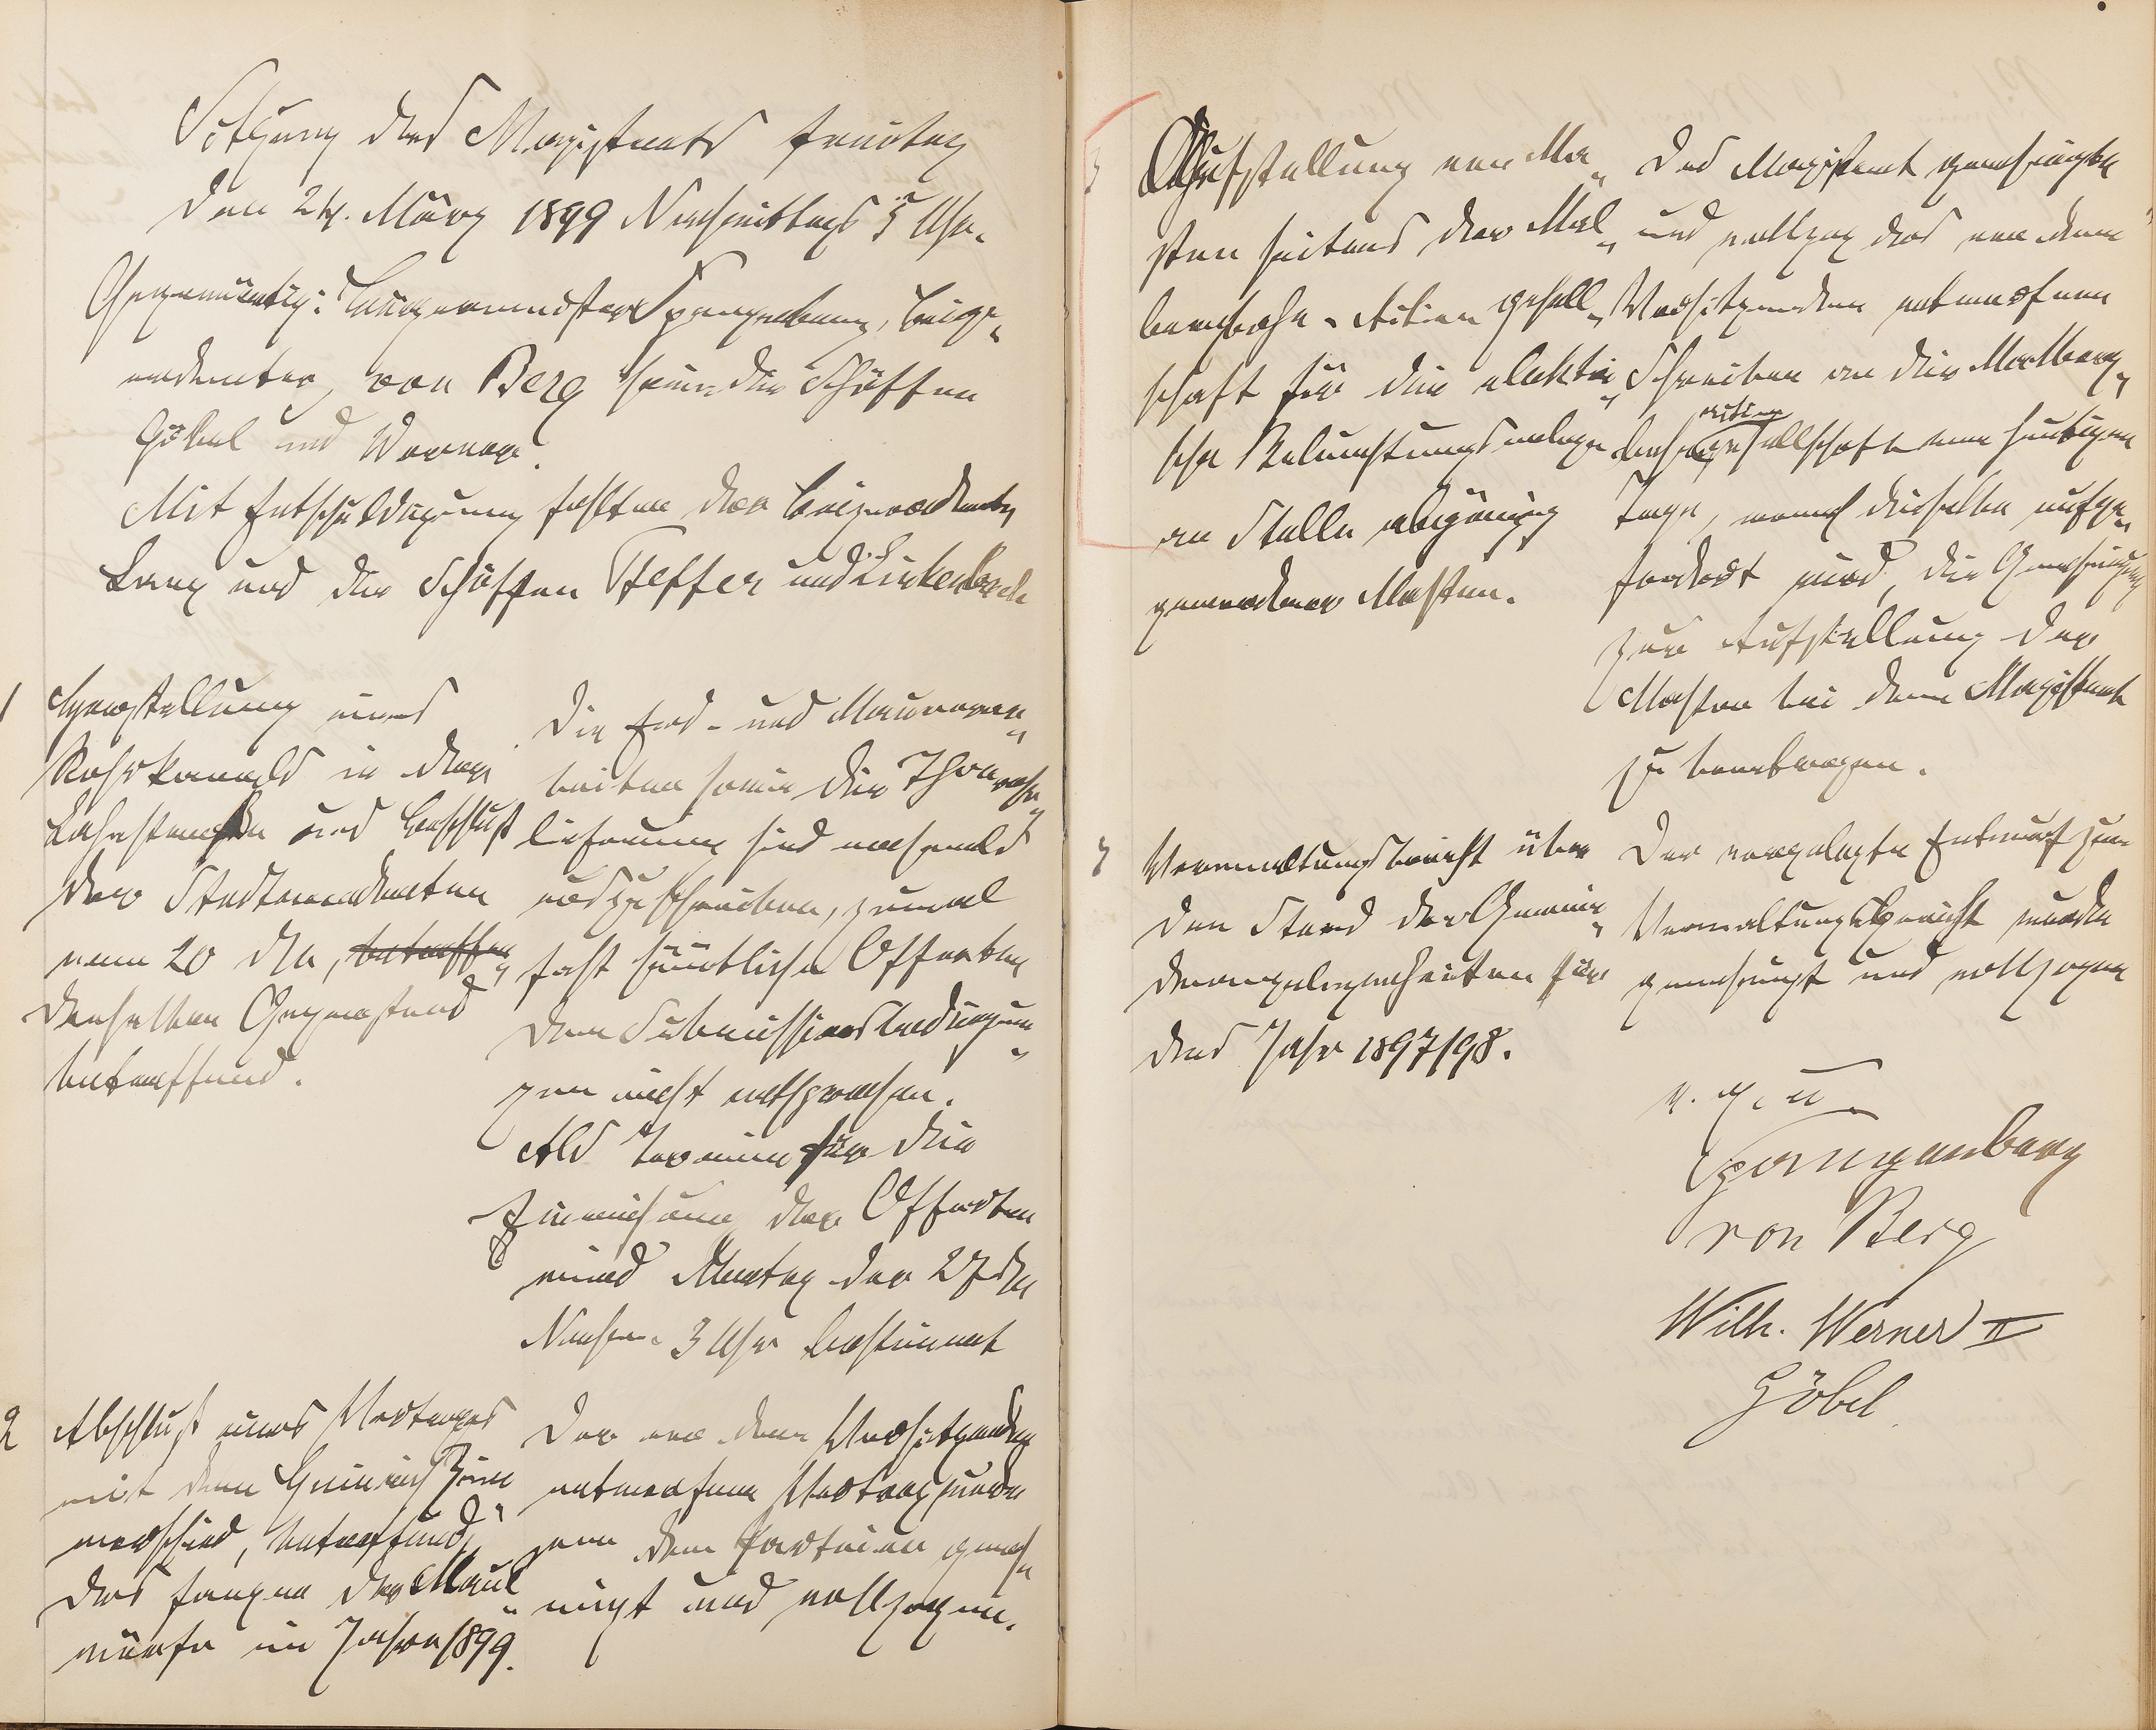 Sitzung des Magistrats Freitag
den 24. März 1899 Nachmittags 5 Uhr.
Gegenwärtig: Bürgermeister Spangenberg, Beige„
ordneter von Berg sowie die Schöffen
Göbel und Werner.
Mit Entschuldigung fehlten der Beigeordnete
Lang und die Schöffen Pfeffer und Linkenbach
1 Herstellung eines
Rohrkanals in der
Lahnstraße und Beschluß
der Stadtverordneten
vom 20 d. M., betreffen„
denselben Gegenstand
betreffend.
Die Erd- und Maurerar„
beiten sowie die Thonrohr„
lieferung sind nochmals
auszuschreiben, zumal
fast sämtliche Offerten
den Submissionsbedingun„
gen nicht entsprachen.
Als Termin für die
Einreichung der Offerten
wird Montag der 27 d. M.
Nachm. 3 Uhr bestimmt
2 Abschluß eines Vertrages
mit dem Heinrich Zim„
merschied, betreffend
das Fangen der Maul„
würfe im Jahre 1899.
Der von dem Vorsitzenden
entworfene Vertrag wurde
von den Parteien geneh„
migt und vollzogen.
3 Aufstellung von Ma„
sten seitens der Mal„
bergbahn-Actien Gesell„
schaft für die elektri„
sche Beleuchtungsanlage
an Stelle abgängig
gewordener Masten.
Das Magistrat genehmigte
und vollzog das von dem
Vorsitzenden entworfene
Schreiben an die Malberg„
bahn actien gesellschaft vom heutigen
Tage, wonach dieselbe aufge„
fordert wird, die Genehmigung
zur Aufstellung der
Masten bei dem Magistrat
zu beantragen.
Verwaltungsbericht über
den Stand der Gemein„
deangelegenheiten für
das Jahr 1897/98.
Der vorgelegte Entwurf zum
Verwaltungsbericht wurde
genehmigt und vollzogen
v. g. u.
Spangenberg
von Berg
Wilh. Werner II
Göbel